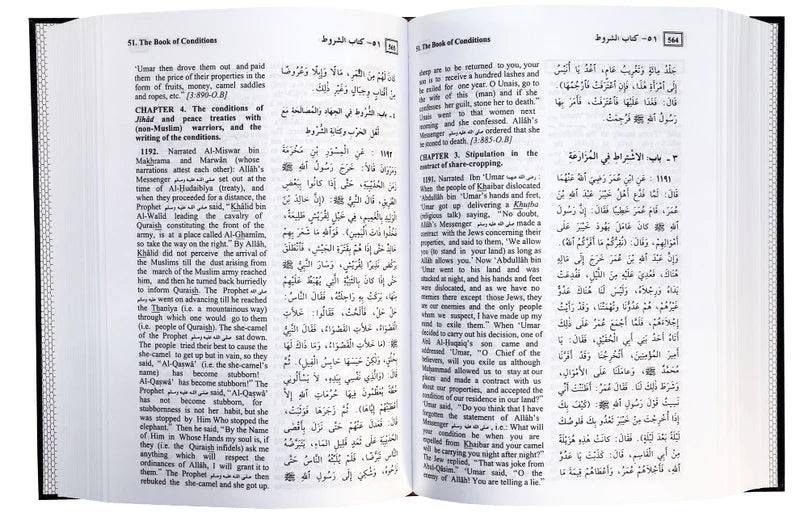 51. The Book of Conditions
٥١ – كتاب الشروط
564
sheep are to be returned to you, your
son is to receive a hundred lashes and
be exiled for one year. O Unais, go to
the wife of this (man) and if she
confesses her guilt, stone her to death."
Unais went to that women next
morning and she confessed. Allâh's
Messenger صلى الله عليه وسلم ordered that she
be stoned to death. [3:885-O.B]
CHAPTER 3. Stipulation in the
contract of share-cropping.
1191. Narrated Ibn 'Umar رضي الله عنهما
When the people of Khaibar dislocated
'Abdullâh bin 'Umar's hands and feet,
'Umar got up delivering a Khutba
(religious talk) saying, "No doubt,
Allâh's Messenger صلى الله عليه وسلم made a
contract with the Jews concerning their
properties, and said to them, 'We allow
you (to stand in your land) as long as
Allâh allows you.' Now 'Abdullâh bin
'Umar went to his land and was
attacked at night, and his hands and feet
were dislocated, and as we have no
enemies there except those Jews, they
are our enemies and the only people
whom we suspect, I have made up my
mind to exile them." When 'Umar
decided to carry out his decision, one of
Abû Al-Huqaiq's son came and
addressed 'Umar, "O Chief of the
believers, will you exile us although
Muhammad allowed us to stay at our
places and made a contract with us
about our properties, and accepted the
condition of our residence in our land?"
'Umar said, "Do you think that I have
forgotten the statement of Allâh's
Messenger صلى الله عليه وسلم, i.e.: What will
your condition be when you are
expelled from Khaibar and your camel
will be carrying you night after night?"
The Jew replied, "That was joke from
Abul-Qâsim." 'Umar said, "O the
enemy of Allâh! You are telling a lie."
جَلْدُ مِائَةٍ وَتَغْرِيبُ عَامٍ، اغْدُ يَا أُنَيْسُ
إِلَى امْرَأَةِ هَذَا، فَإِنِ اعْتَرَفَتْ فَارْجُمْهَا).
قَالَ: فَغَدَا عَلَيْهَا فَاعْتَرَفَتْ، فَأَمَرَ بِهَا
رَسُولُ اللهِ ﷺ فَرُجِمَتْ.
٣ – باب: الاشْتِرَاط فِي المُزَارَعَةِ
١١٩١ : عَنِ ابْنِ عُمَرَ رَضِيَ اللهُ عَنْهُمَا
قَالَ: لَمَّا فَدَعَ أَهْلُ خَيْبَرَ عَبْدَ اللهِ بْنَ
عُمَرَ، قَامَ عُمَرُ خَطِيبًا فَقَالَ: إِنَّ رَسُولَ
اللهِ ﷺ كَانَ عَامَلَ يَهُودَ خَيْبَرَ عَلَى
أَمْوَالِهِمْ، وَقَالَ: (نُقِرُّكُمْ مَا أَقَرَّكُمُ اللهُ).
وَإِنَّ عَبْدَ اللهِ بْنَ عُمَرَ خَرَجَ إِلَى مَالِهِ
هُنَاكَ، فَعُدِيَ عَلَيْهِ مِنَ اللَّيْلِ، فَفُدِعَتْ
يَدَاهُ وَرِجْلَاهُ، وَلَيْسَ لَنَا هُنَاكَ عَدُوٌّ
غَيْرَهُمْ، هُمْ عَدُوُّنَا وَتُهَمَتُنَا، وَقَدْ رَأَيْتُ
إِجْلَاءَهُمْ، فَلَمَّا أَجْمَعَ عُمَرُ عَلَى ذَلِكَ
أَتَاهُ أَحَدُ بَنِي أَبِي الْحُقَيْقِ، فَقَالَ: يَا
أَمِيرَ الْمُؤْمِنِينَ، أَتُخْرِجُنَا وَقَدْ أَقَرَّنَا
مُحَمَّدٌ ﷺ، وَعَامَلَنَا عَلَى الْأَمْوَالِ،
وَشَرَطَ ذَلِكَ لَنَا. فَقَالَ عُمَرُ: أَظَنَنْتَ أَنِّي
نَسِيتُ قَوْلَ رَسُولِ اللهِ ﷺ: (كَيْفَ بِكَ
إِذَا أُخْرِجْتَ مِنْ خَيْبَرَ تَعْدُو بِكَ قَلُوصُكَ
لَيْلَةً بَعْدَ لَيْلَةٍ). فَقَالَ: كَانَتْ هَذِهِ هُزَيْلَةً
مِنْ أَبِي الْقَاسِمِ، قَالَ: كَذَبْتَ يَا عَدُوَّ
اللهِ، فَأَجْلَاهُمْ عُمَرُ، وَأَعْطَاهُمْ قِيمَةَ مَا
51. The Book of Conditions
٥١ – كتاب الشروط
565
'Umar then drove them out and paid
them the price of their properties in the
form of fruits, money, camel saddles
and ropes, etc." [3:890-O.B]
CHAPTER 4. The conditions of
Jihâd and peace treaties with
(non-Muslim) warriors, and the
writing of the conditions.
1192. Narrated Al-Miswar bin
Makhrama and Marwân (whose
narrations attest each other): Allâh's
Messenger صلى الله عليه وسلم set out at the
time of Al-Hudaibîya (treaty), and
when they proceeded for a distance, the
Prophet صلى الله عليه وسلم said, "Khâlid bin
Al-Walîd leading the cavalry of
Quraish constituting the front of the
army, is at a place called Al-Ghamîm,
so take the way on the right." By Allâh,
Khâlid did not perceive the arrival of
the Muslims till the dust arising from
the march of the Muslim army reached
him, and then he turned back hurriedly
to inform Quraish. The Prophet صلى الله عليه وسلم
went on advancing till he reached the
Thanîya (i.e. a mountainous way)
through which one would go to them
(i.e. people of Quraish). The she-camel
of the Prophet صلى الله عليه وسلم sat down.
The people tried their best to cause the
she-camel to get up but in vain, so they
said, "Al-Qaswâ' (i.e. the she-camel's
name) has become stubborn!
Al-Qaswâ' has become stubborn!" The
Prophet صلى الله عليه وسلم said, "Al-Qaswâ'
has not become stubborn, for
stubbornness is not her habit, but she
was stopped by Him Who stopped the
elephant." Then he said, "By the Name
of Him in Whose Hands my soul is, if
they (i.e. the Quraish infidels) ask me
anything which will respect the
ordinances of Allâh, I will grant it to
them." The Prophet صلى الله عليه وسلم then
rebuked the she-camel and she got up.
كَانَ لَهُمْ مِنَ الثَّمَرِ، مَالًا وَإِبِلًا وَعُرُوضًا
مِنْ أَقْتَابٍ وَحِبَالٍ وَغَيْرِ ذَلِكَ.
٤ – باب: الشُّرُوط فِي الجِهَادِ وَالمُصَالَحَة مَعَ
أَهْلِ الحَرْبِ وَكِتَابَة الشُّرُوط
١١٩٢ : عَنِ الْمِسْوَرِ بْنِ مَخْرَمَةَ
وَمَرْوَانَ قَالَا: خَرَجَ رَسُولُ اللهِ ﷺ
زَمَنَ الْحُدَيْبِيَةِ، حَتَّى إِذَا كَانُوا بِبَعْضِ
الطَّرِيقِ، قَالَ النَّبِيُّ ﷺ: (إِنَّ خَالِدَ بْنَ
الْوَلِيدِ بِالْغَمِيمِ، فِي خَيْلٍ لِقُرَيْشٍ طَلِيعَةً،
فَخُذُوا ذَاتَ الْيَمِينِ). فَوَاللهِ مَا شَعَرَ بِهِمْ
خَالِدٌ حَتَّى إِذَا هُمْ بِقَتَرَةِ الْجَيْشِ، فَانْطَلَقَ
يَرْكُضُ نَذِيرًا لِقُرَيْشٍ، وَسَارَ النَّبِيُّ ﷺ
حَتَّى إِذَا كَانَ بِالثَّنِيَّةِ الَّتِي يُهْبَطُ عَلَيْهِمْ
مِنْهَا، بَرَكَتْ بِهِ رَاحِلَتُهُ، فَقَالَ النَّاسُ:
حَلْ حَلْ، فَأَلَحَّتْ، فَقَالُوا: خَلَأَتِ
الْقَصْوَاءُ، خَلَأَتِ الْقَصْوَاءُ، فَقَالَ النَّبِيُّ
ﷺ: (مَا خَلَأَتِ الْقَصْوَاءُ، وَمَا ذَاكَ لَهَا
بِخُلُقٍ، وَلَكِنْ حَبَسَهَا حَابِسُ الْفِيلِ). ثُمَّ
قَالَ: (وَالَّذِي نَفْسِي بِيَدِهِ، لَا يَسْأَلُونِي
خُطَّةً يُعَظِّمُونَ فِيهَا حُرُمَاتِ اللهِ إِلَّا
أَعْطَيْتُهُمْ إِيَّاهَا). ثُمَّ زَجَرَهَا فَوَثَبَتْ،
قَالَ: فَعَدَلَ عَنْهُمْ حَتَّى نَزَلَ بِأَقْصَى
الْحُدَيْبِيَةِ عَلَى ثَمَدٍ قَلِيلِ الْمَاءِ، يَتَبَرَّضُهُ
النَّاسُ تَبَرُّضًا، فَلَمْ يُلَبِّثْهُ النَّاسُ حَتَّى
نَزَحُوهُ، وَشُكِيَ إِلَى رَسُولِ اللهِ ﷺ